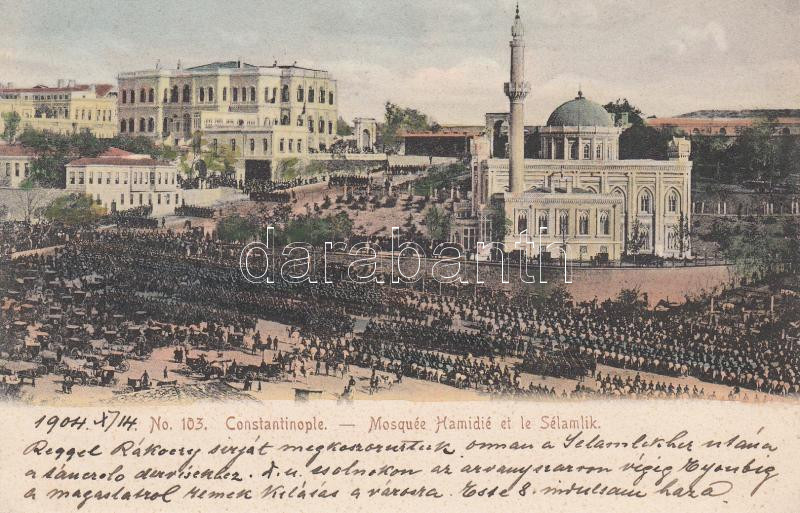 darabanth
1904. X/14. No. 103. Constantinople. — Mosquée Hamidié et le Sélamlik.
Reggel Rákoczy sirját megkoszoruztuk onnan a Selamlekhez utána
a táncoló dervisekhez. d. u. csolnokon az aranyszarvon végig Eyoubig
a magaslatrol remek kilátás a városra. Este 8. indultam haza.